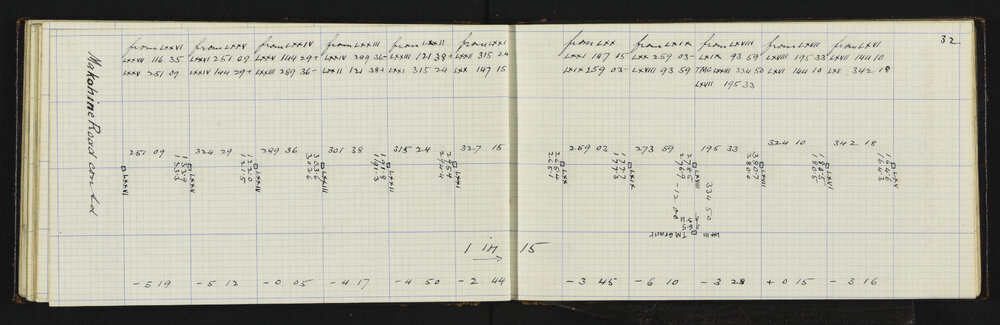 32
Makohine Road contd
from LXXVI
LXXVII 116 35
LXXV 251 09
from LXXV
LXXVI 251 09
LXXIV 144 29+
from LXXIV
LXXV 144 29+
LXXIII 289 36-
from LXXIII
LXXIV 289 36-
LXXII 121 38+
from LXXII
LXXIII 121 38+
LXXI 315 24
from LXXI
LXXII 315 24
LXX 147 15
from LXX
LXXI 147 15
LXIX 259 03-
from LXIX
LXX 259 03-
LXVIII 93 59
from LXVIII
LXIX 93 59
TMG LXXIII 334 50
LXVII 195 33
from LXVII
LXVIII 195 33
LXVI 144 10
from LXVI
LXVII 144 10
LXV 342 18
251 09
324 29
289 36
301 38
315 24
327 15
259 03
273 59
195 33
324 10
342 18
LXXVI
LXXV
LXXIV
LXXIII
LXXI
LXX
LXIX
LXVIII
LXVII
LXVI
LXV
-12 00
334 50
TMGrant
LXXIII
1 in 15
-5 19
-5 12
-0 05
-4 17
-4 50
-2 44
-3 45
-6 10
-3 28
+0 15
-3 16